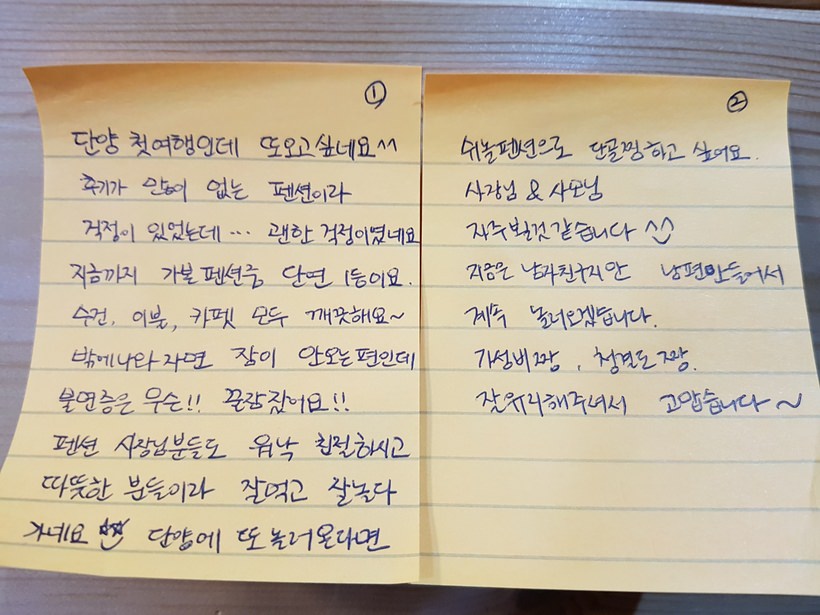 ①
단양 첫여행인데 또오고싶네요^^
후기가 많이 없는 펜션이라
걱정이 있었는데... 괜한 걱정이였네요
지금까지 가본펜션중 단연 1등이요.
수건, 이불, 카펫 모두 깨끗해요~
밖에나와자면 잠이 안오는편인데
불면증은 무슨!! 꿀잠잤어요!!
펜션 사장님분들도 워낙 친절하시고
따뜻한 분들이라 잘먹고 잘놀다
가네요 단양에 또놀러온다면
②
쉬놀펜션으로 단골찜하고 싶어요.
사장님 & 사모님
자주뵐것같습니다 ^^
지금은 남자친구지만 남편만들어서
계속 놀러오겠습니다.
가성비짱, 청결도짱.
잘유지해주셔서 고맙습니다~